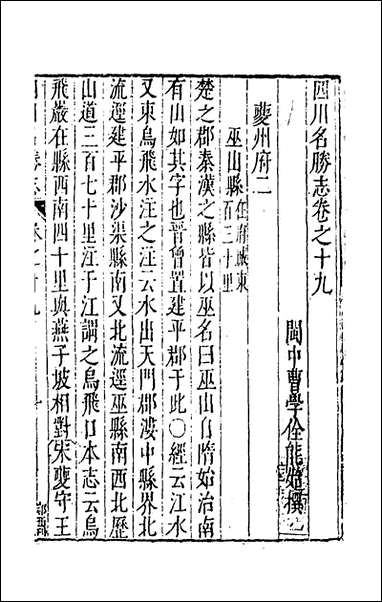 四川名勝志卷之十九
閩中曹學佺能始撰
夔州府二
巫山縣
百三十里
楚之郡秦漢之縣皆以巫名曰巫山自隋始治南
有山如其字也晉曾置建平郡于此〇經云江水
又東烏飛水注之注云水出天門郡漊中縣界北
流逕建平郡沙渠縣南又北流逕巫縣南西北歷
山道三百七十里注于江謂之烏飛口本志云烏
飛巖在縣西南四十里與燕子坡相對宋夔守王